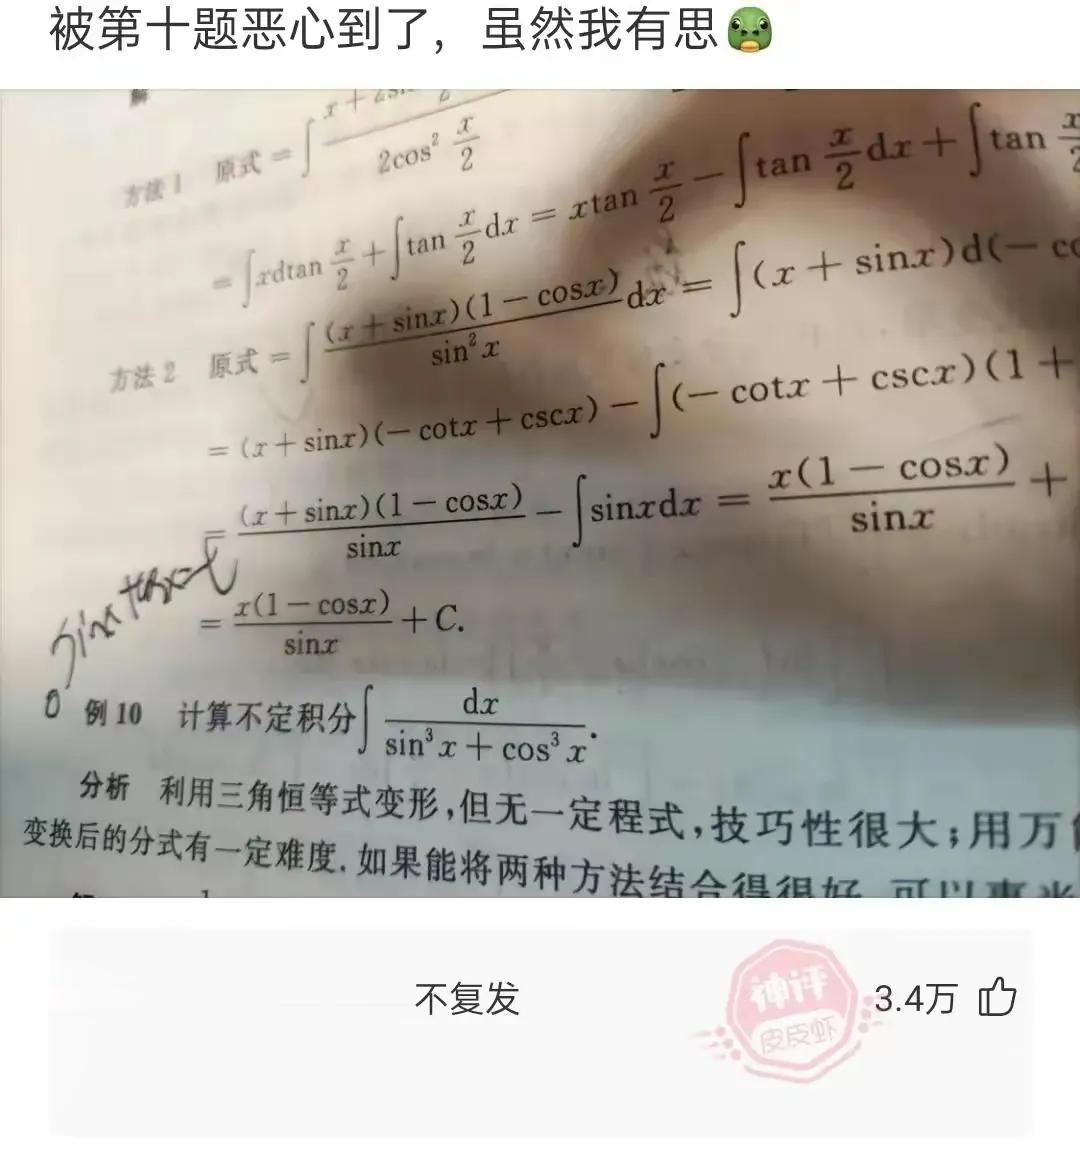 被第十题恶心到了，虽然我有思
解
方法1 原式 = ∫ x + 2sin 2 / 2cos² x/2
= ∫xdtan x/2 + ∫tan x/2 dx = xtan x/2 − ∫tan x/2 dx + ∫tan x/2
方法2 原式 = ∫ (x + sinx)(1 − cosx) / sin²x dx = ∫(x + sinx)d(− co
= (x + sinx)(− cotx + cscx) − ∫(− cotx + cscx)(1 +
= (x + sinx)(1 − cosx) / sinx − ∫sinxdx = x(1 − cosx) / sinx +
= x(1 − cosx) / sinx + C.
例10 计算不定积分∫ dx / sin³x + cos³x.
分析 利用三角恒等式变形,但无一定程式,技巧性很大;用万
变换后的分式有一定难度.如果能将两种方法结合得很好
不复发
神评
皮皮虾
3.4万